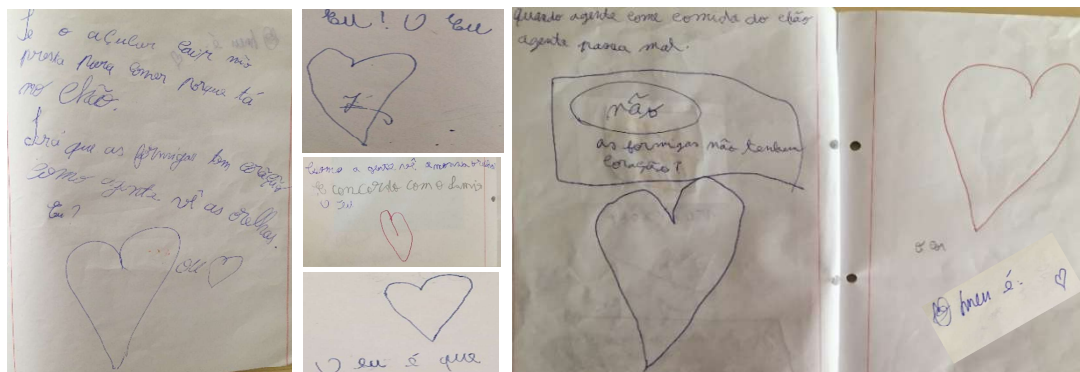 Se o açucar cair não
presta para comer porque tá
no chão.
Será que as formigas tem coração
como agente vê as orelhas.
Eu?
ou
Eu! O Eu
a gente vê.
Eu concordo com o
O eu é que
quando agente come comida do chão
agente passa mal.
não
as formigas não tenhem
coração?
o
meu é.